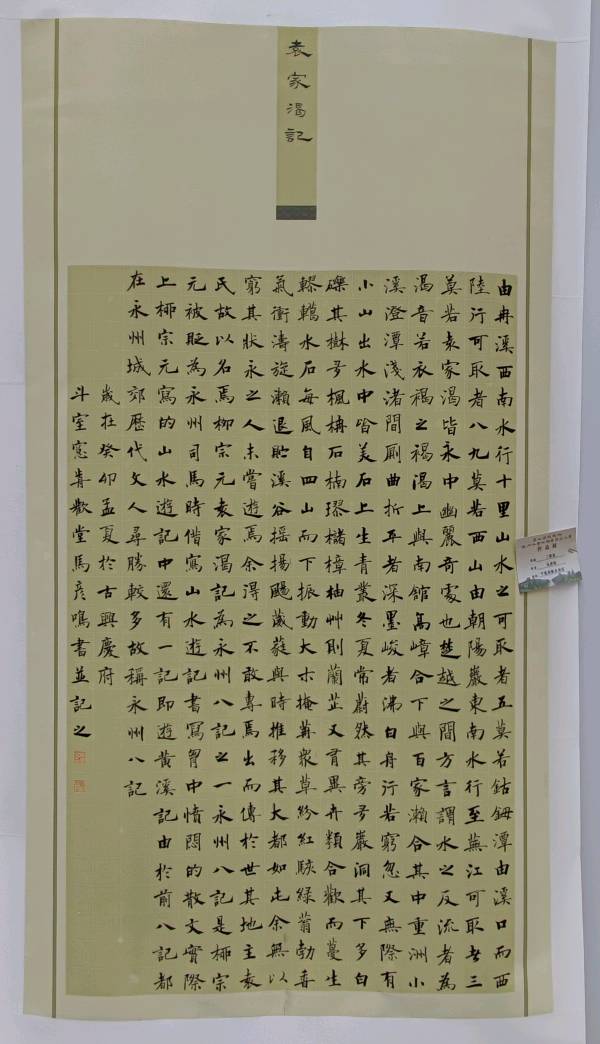 袁家渴記
由冉溪西南水行十里山水之可取者五莫若鈷鉧潭由溪口而西
陸行可取者八九莫若西山由朝陽巖東南水行至蕪江可取者三
莫若袁家渴皆永中幽麗奇處也楚越之間方言謂水之反流者為
渴音若衣褐之褐渴上與南館高嶂合下與百家瀨合其中重洲小
溪澄潭淺渚間廁曲折平者深墨峻者沸白舟行若窮忽又無際有
小山出水中皆美石上生青叢冬夏常蔚然其旁多巖洞其下多白
礫其樹多楓柟石楠櫧樟柚艸則蘭芷又有異卉類合歡而蔓生
轇轕水石每風自四山而下振動大木掩苒眾草紛紅駭綠蓊勃香
氣衝濤旋瀨退貯溪谷搖揚飃葳蕤與時推移其大都如此余無以
窮其狀永之人未嘗遊焉余得之不敢專焉出而傳於世其地主袁
氏故以名焉柳宗元袁家渴記為永州八記之一永州八記是柳宗
元被貶為永州司馬時借寫山水遊記書寫胸中憤悶的散文實際
上柳宗元寫的山水遊記中還有一記即遊黃溪記由於前八記都
在永州城郊歷代文人尋勝較多故稱永州八記
歲在癸卯孟夏於古興慶府
斗室窓歡堂馬彥鳴書並記之